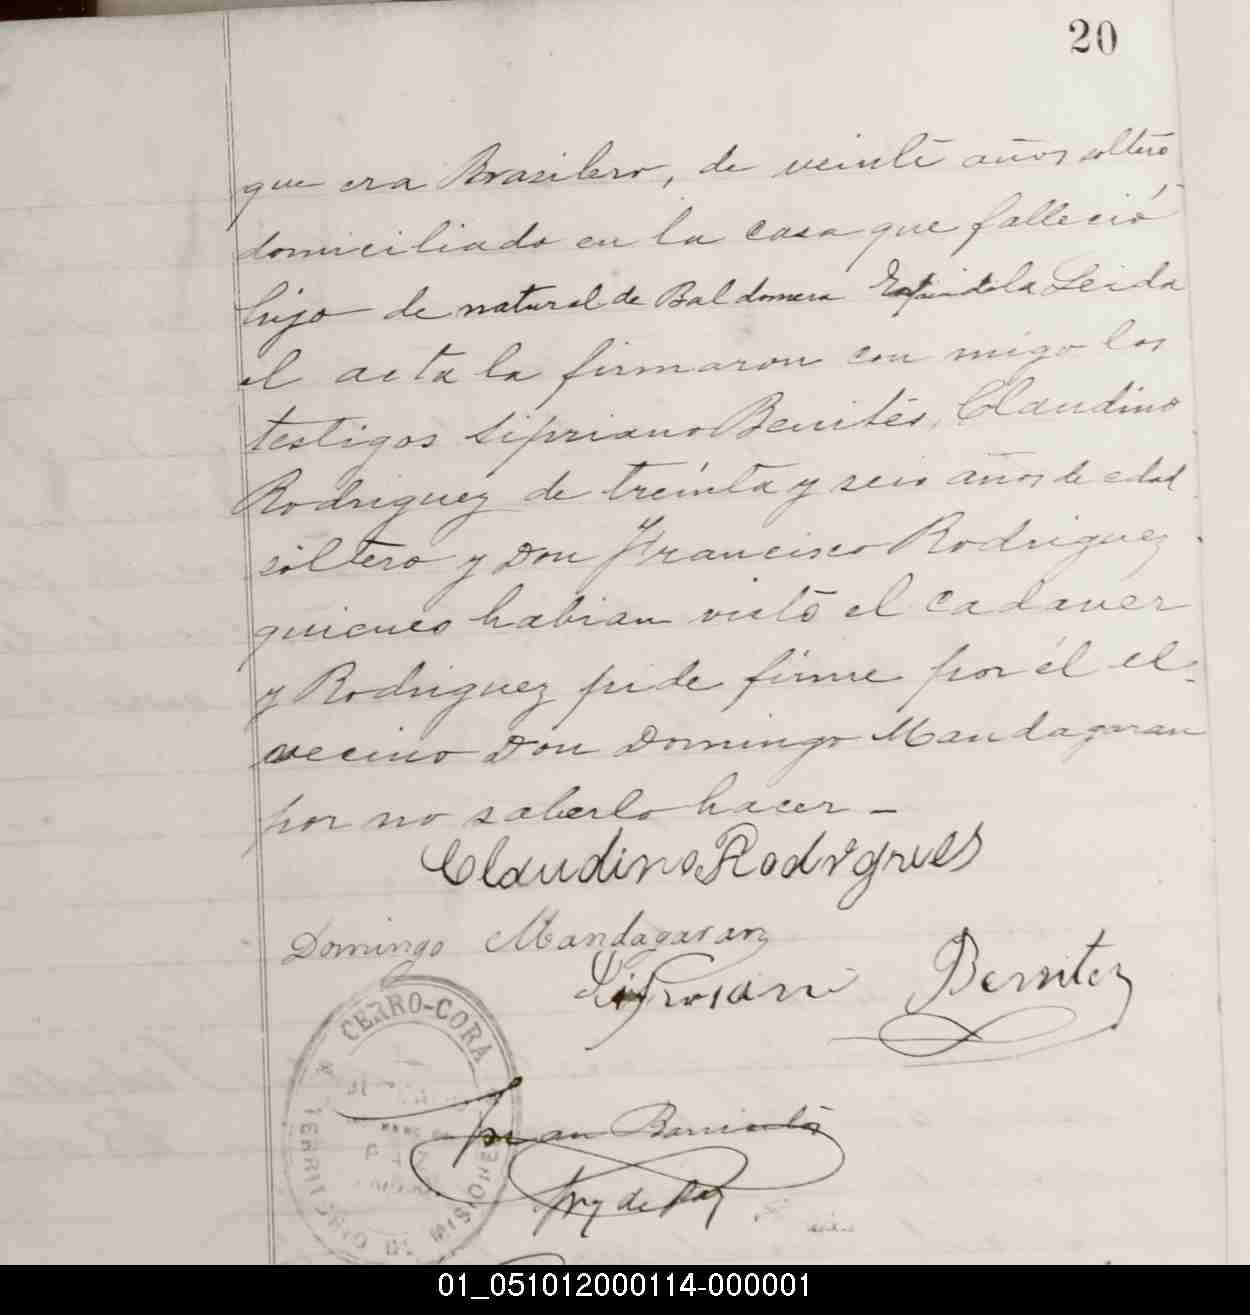 20
que era Brasilero, de veinte años soltero
domiciliado en la casa que falleció
hijo de natural de Baldomera Espindola Leida
el acta la firmaron con migo los
testigos Sipriano Benites, Claudino
Rodriguez de treinta y seis años de edad
soltero y Don Francisco Rodriguez
quienes habian visto el cadaver
y Rodriguez pide firme por él el
vecino Don Domingo Mandagaran
por no saberlo hacer -
Claudino Rodrigues
Domingo Mandagaran
Benitez
CERRO-CORA
TERRITORIO DE MISIONES
Juan Barrientos
Juez de Paz
01_051012000114-000001